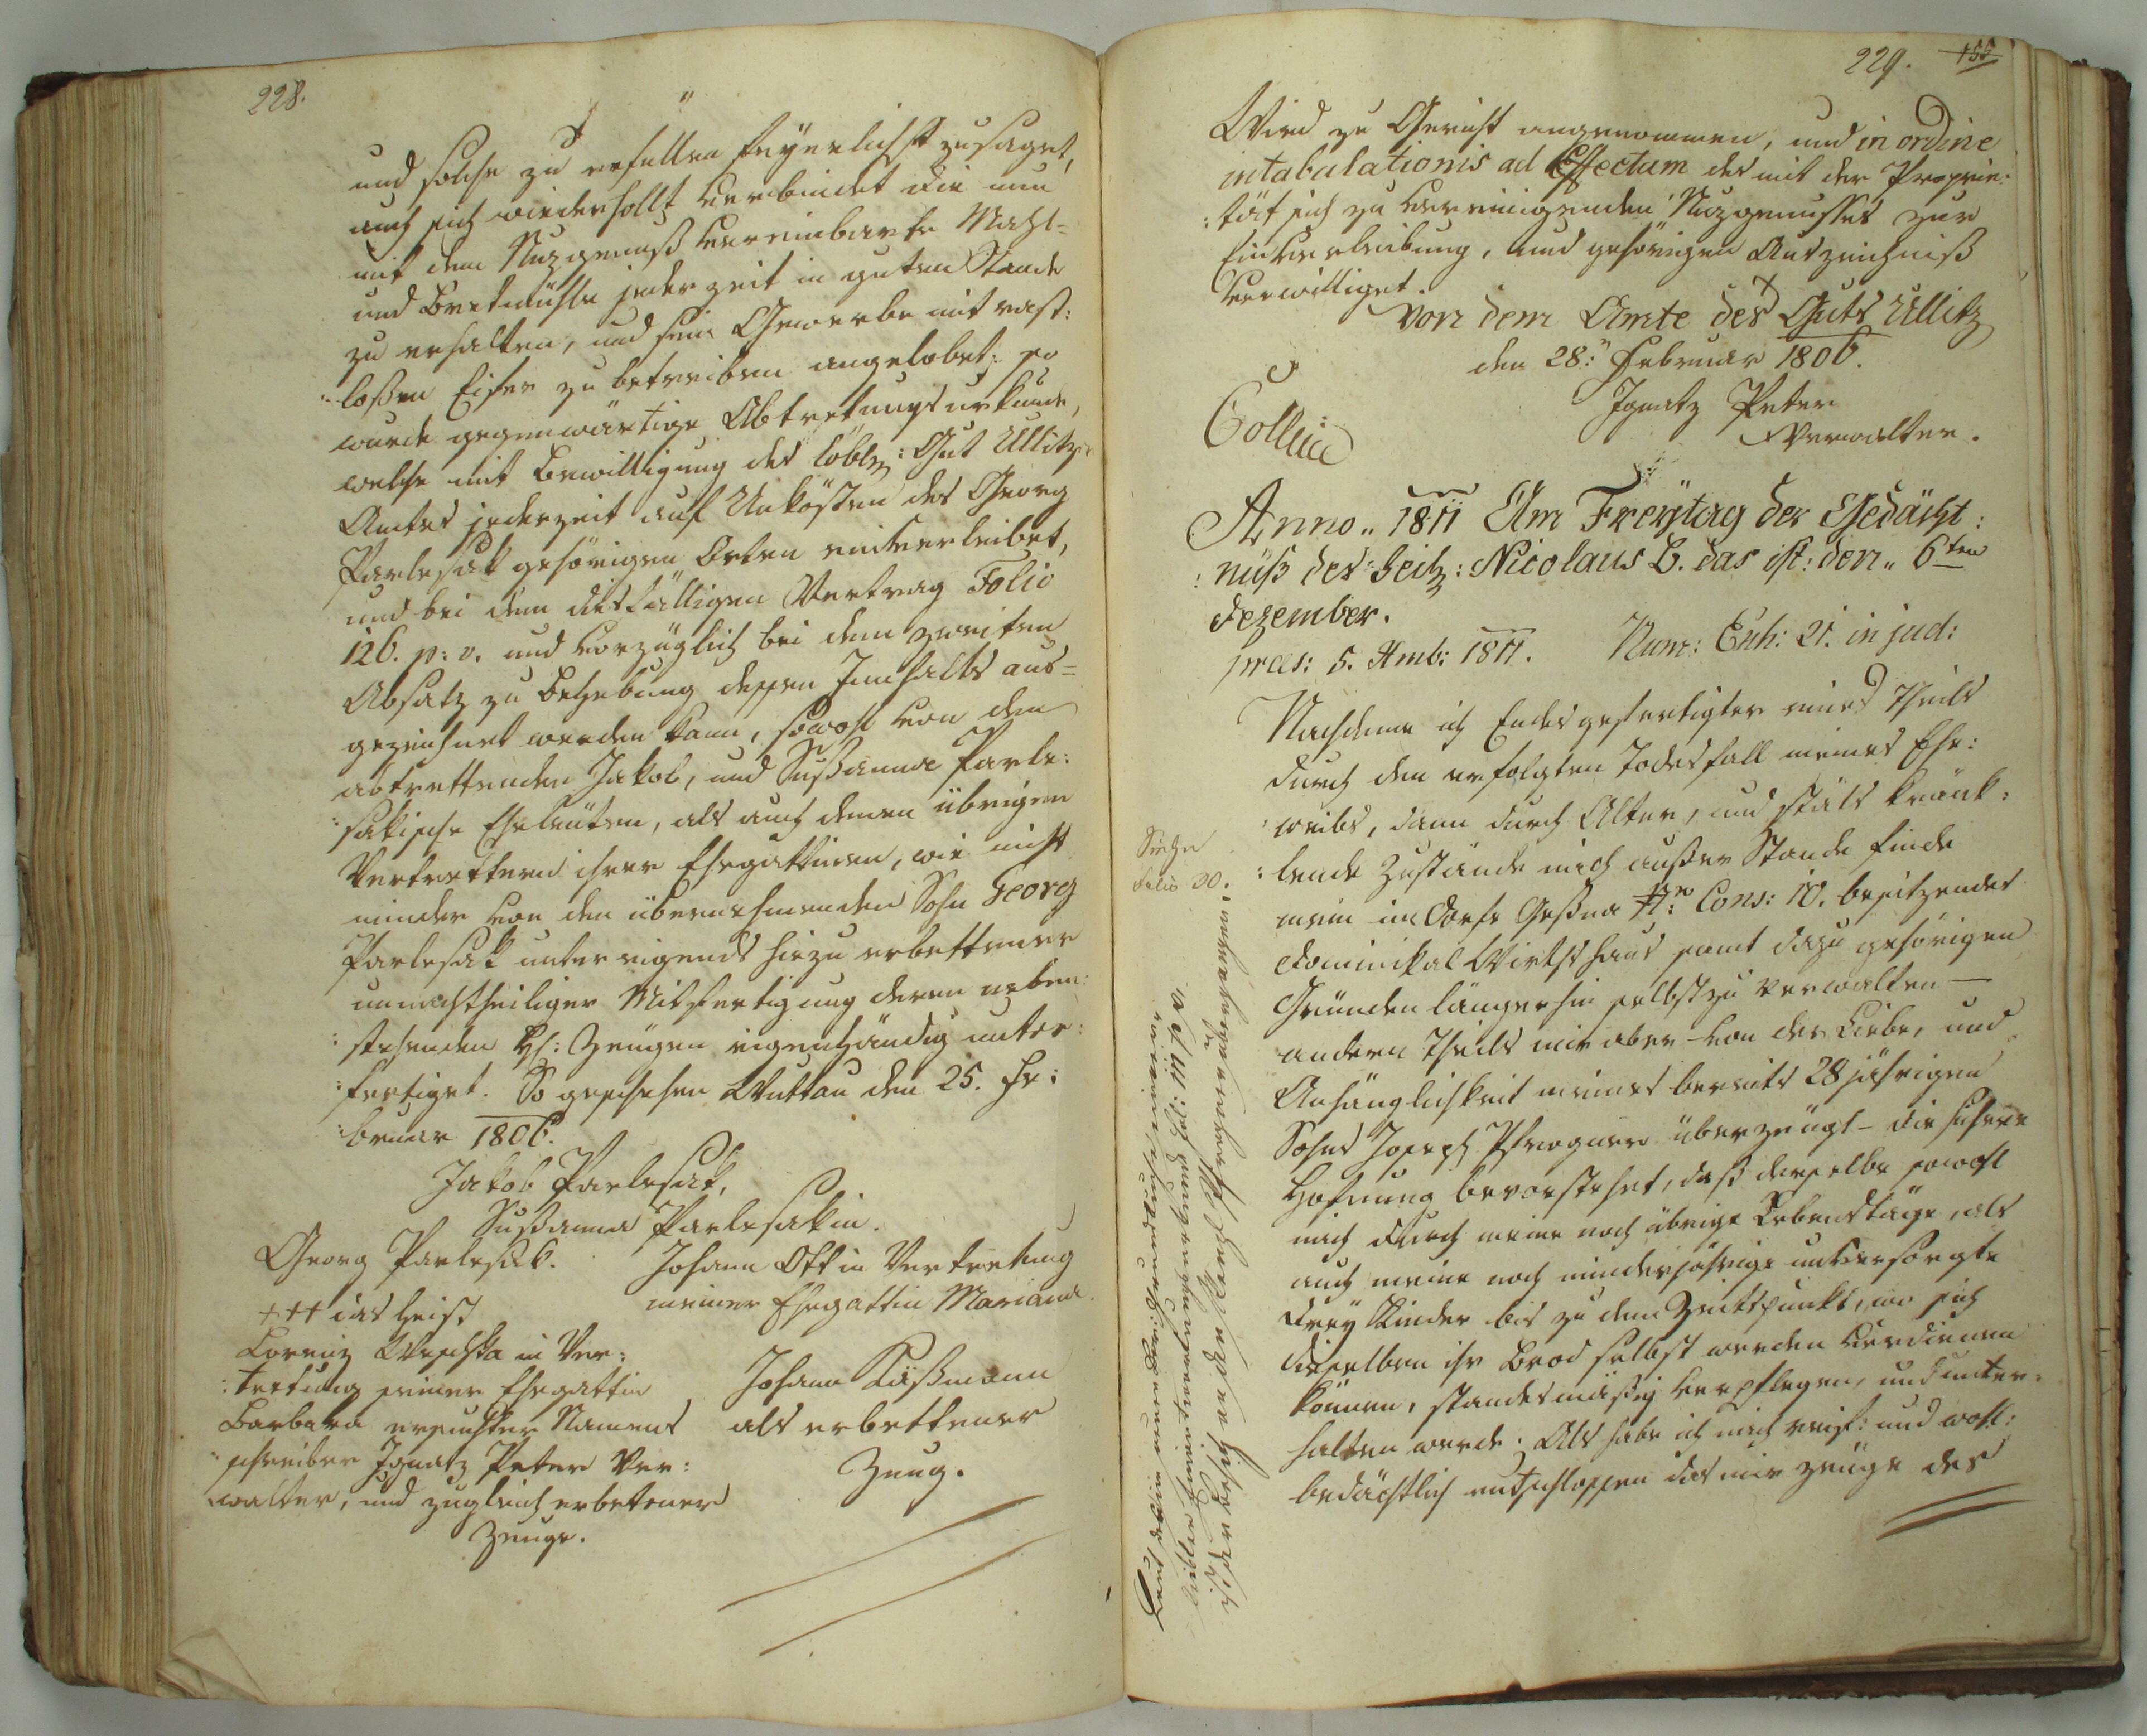 228.
und solche zu erfüllen feyerlichst zusaget,
auch sich wiederhollt verbindet die nun
mit dem Nuzgenuß vereinbarte Mahl-
und Bretmühle jeder zeit in guten Stande
zu erhalten, und sein Gewerbe mit rast:
:losen Eifer zu betreiben angelobet; so
wurde gegenwärtige Abtretungsurkunde,
welche mit Bewilligung des löbl: Gut Ullitzer
Amtes jederzeit auf Unkösten des Georg
Parlesak gehörigen Orten einverleibet,
und bei dem diesfälligen Vertrag Folio
126. p: v. und vorzüglich bei dem zweiten
Absatz zu Behebung dessen Innhalts aus-
gezeichnet werden kann, sowohl von den
abtrettenden Jakob, und Susanna Parle:
:sakische Eheleüten, als auch denen übrigen
Vertrettern ihrer Ehegattinen, wie nicht
minder von den übernehmenden Sohn Georg
Parlesak unter eigends hiezu erbettener
unnachtheiliger Mitfertigung deren neben:
:stehenden H: Zeugen eigenhändig unter:
:fertiget. So geschehen Wuttau den 25. Fe:
:bruar 1806.
Jakob Parlesak,
Susanna Parlesakin.
Georg Parlesak.
Johann Ott in Vertretung
meiner Ehegattin Mariana.
+++ das heist
Lorenz in Ver:
:tretung seiner Ehegattin
Barbara ersuchter Namens
:schreiber Ignatz Peter Ver:
:walter, und zugleich erbetener
Zeuge.
Johann Käßmann
als erbettener
Zeug.
229. 155
Wird zu Gericht angenommen, und in ordine
intabulationis ad Effectum des mit der Proprie:
:tät sich zu vereinigenden Nuzgenusses zur
Einverleibung, und gehörigen Auszeichniß
bewilliget.
Von dem Amte des Guts Ullitz
den 28: Februar 1806.
Ignatz Peter
Verwalter.
Anno 1811 Am Freytag der Gedächt:
:nüß des Heil: Nicolaus B. das ist: den 6ten
Dezember.
praes: 5. Xmb: 1811. Num: Exh: 21. in jud:
Nachdeme ich Endesgefertigter eines Theils
durch den erfolgten Todesfall meines Ehe:
:weibs, dann durch Alter, und stäts kränk:
:lende Zustände mich außer Stande finde
mein im Dorfe Geßna Nro Cons: 10. besitzendes
Dominikal Wirthshaus samt dazu gehörigen
Gründen längershin selbst zu verwalten —
andern Theils mir aber von der Liebe, und
Anhänglichkeit meines bereits 28 jährigen
Sohns Joseph überzeügt – die sichere
Hofnung bevorstehet, daß derselbe sowohl
mich durch meine noch übrige Lebenstäge, als
auch meine noch minderjährige unversorgte
drey Kinder bis zu dem Zeitspunkt, wo sich
dieselben ihr Brod selbst werden verdienen
können, standesmäßig verpflegen, und unter:
halten werde. Als habe ich mich reif: und wohl:
bedächtlich entschlossen das mir zeüge des
Siehe
Folio 30.